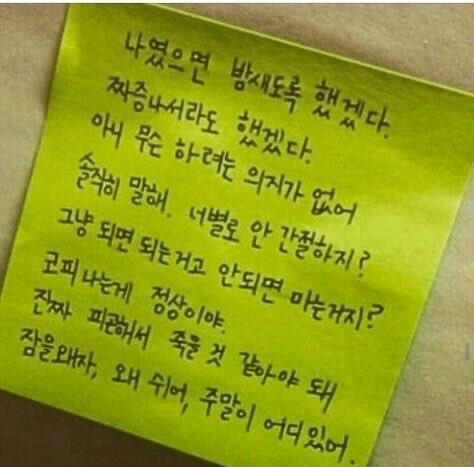 나였으면 밤새도록 했겠다.
짜증나서라도 했겠다.
아니 무슨 하려는 의지가 없어
솔직히 말해. 너별로 안 간절하지?
그냥 되면 되는거고 안되면 마는거지?
코피나는게 정상이야.
진짜 피곤해서 죽을 것 같아야 돼
잠을왜자, 왜 쉬어, 주말이 어디있어.